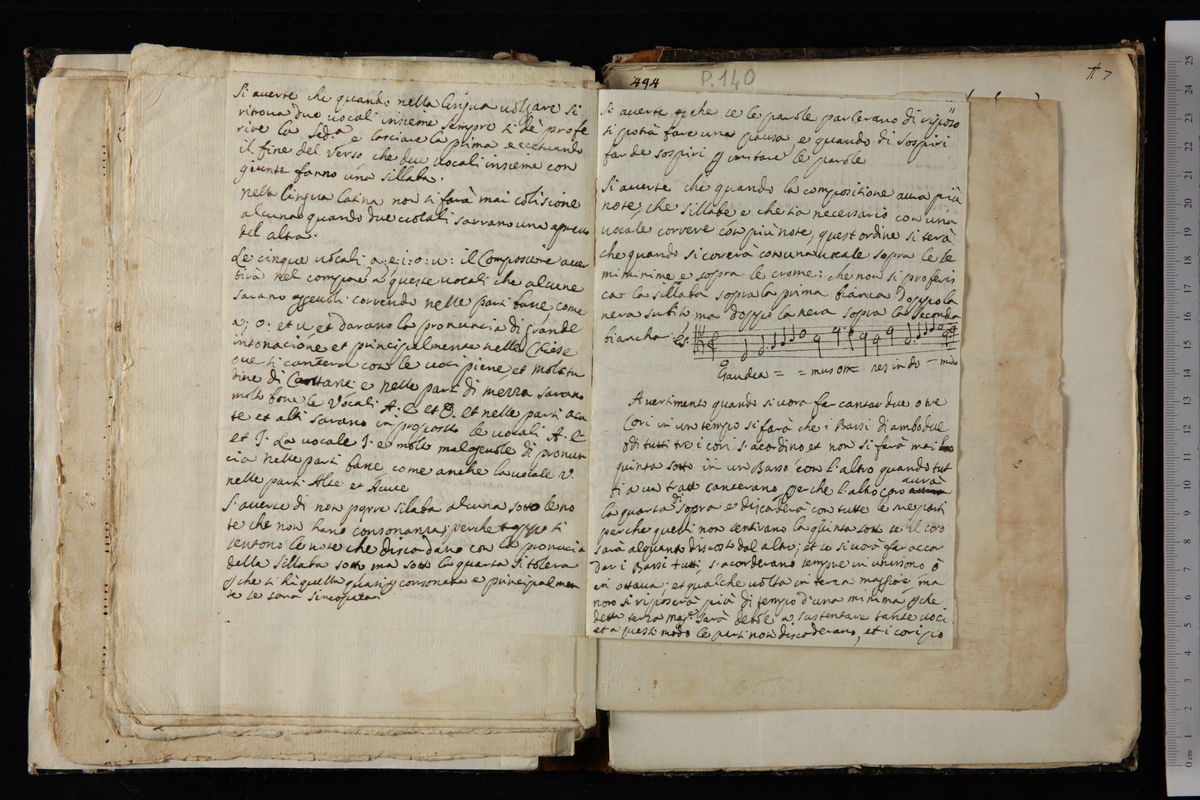 Si averte che quando nella lingua volgare si
ritrova due vocali insieme sempre si de profe
rire la seda e lasciare la prima eccetuando
il fine del verso che due vocali insieme con
giunte fanno una sillaba.
Nella lingua latina non si farà mai colisione
alcuna quando due vocali sarrano una apresso
del altra.
Le cinque vocali a: e: i: o: u: il Compositore aver
tirà nel comporre a queste vocali che alcune
sarano correndo nelle parti basse come
a; o: et u et darano la pronuncia di grande
intonacione et principalmente nelle Chiese
ove si cantera con le voci piene et moltitu
dine di Cantanti e nelle parti di mezza sarano
molto bone le vocali A: E et O. et nelle parti acu
te et alti sarano in proposito le vocali A. E
et I. La vocale I. et molto malagevole di pronun
cia nelle parti basse come anche la vocale V.
nelle parti Alte et Acute
Si averte di non porre silaba alcuna sotto le no
te che non hano consonanza; perche ti
sentono le note che discordano con la pronucia
della sillaba sotto ma sotto la quarta si tolera
che si ha quella quasi consonanza e principalmen
te se sarà sincopata
494
P. 140
7
11
Si averte che se le parole parlerano di riposo
si potrà fare una pausa, e quando di sospiri
far de sospiri imitare le parole
Si averte che quando la compositione avra più
note, che sillabe e che sia necessario con una
vocale correre con più note, quest ordine si terà
che quando si corerà con una vocale sopra le se
miminime e sopra le crome: che non si proferis
ca la sillaba sopra la prima bianca doppo la
nera subito ma doppo la nera sopra la seconda
biancha
Gaudea = = mus om= nes in do = mino
Avertimento quando si vora far cantar due o tre
Cori in un tempo si farà che i Bassi di ambo due
o di tutti tre i cori s'acordino et non si farà mai
quinta sotto in un Basso con l'altro quando tut
ti a un tratto canterano perche l'altro coro avrà
la quarta di sopra et discorderà con tutte le sue parti
perche quelli non sentirano la quinta sotto se il coro
sarà alquanto discosto dal altro; et se si vorà far accor
dar i Bassi tutti, s'acorderano sempre in unisono ò
in ottava; et qualche volta in terza maggiore ma
non si riposerà più di tempo d'una minima che
detta terza magre sarà debole a sustentare tante voci
et a questo modo le parti non discorderano, et i cori po